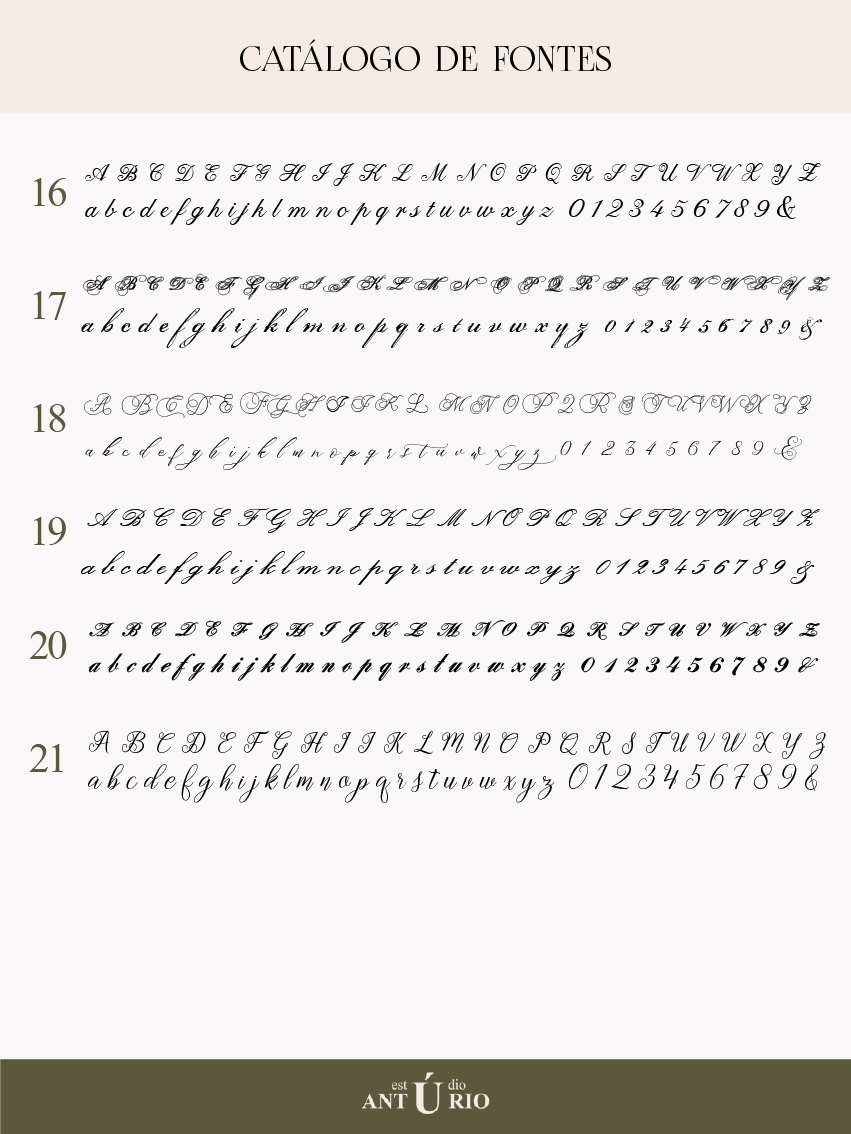 CATÁLOGO DE FONTES
16
A B C D E F G H I J K L M N O P Q R S T U V W X Y Z
a b c d e f g h i j k l m n o p q r s t u v w x y z 0 1 2 3 4 5 6 7 8 9 &
17
A B C D E F G H I J K L M N O P Q R S T U V W X Y Z
a b c d e f g h i j k l m n o p q r s t u v w x y z 0 1 2 3 4 5 6 7 8 9 &
18
A B C D E F G H I J K L M N O P Q R S T U V W X Y Z
a b c d e f g h i j k l m n o p q r s t u v w x y z 0 1 2 3 4 5 6 7 8 9 &
19
A B C D E F G H I J K L M N O P Q R S T U V W X Y Z
a b c d e f g h i j k l m n o p q r s t u v w x y z 0 1 2 3 4 5 6 7 8 9 &
20
A B C D E F G H I J K L M N O P Q R S T U V W X Y Z
a b c d e f g h i j k l m n o p q r s t u v w x y z 0 1 2 3 4 5 6 7 8 9 &
21
A B C D E F G H I J K L M N O P Q R S T U V W X Y Z
a b c d e f g h i j k l m n o p q r s t u v w x y z 0 1 2 3 4 5 6 7 8 9 &
estÚdio
ANTÚRIO